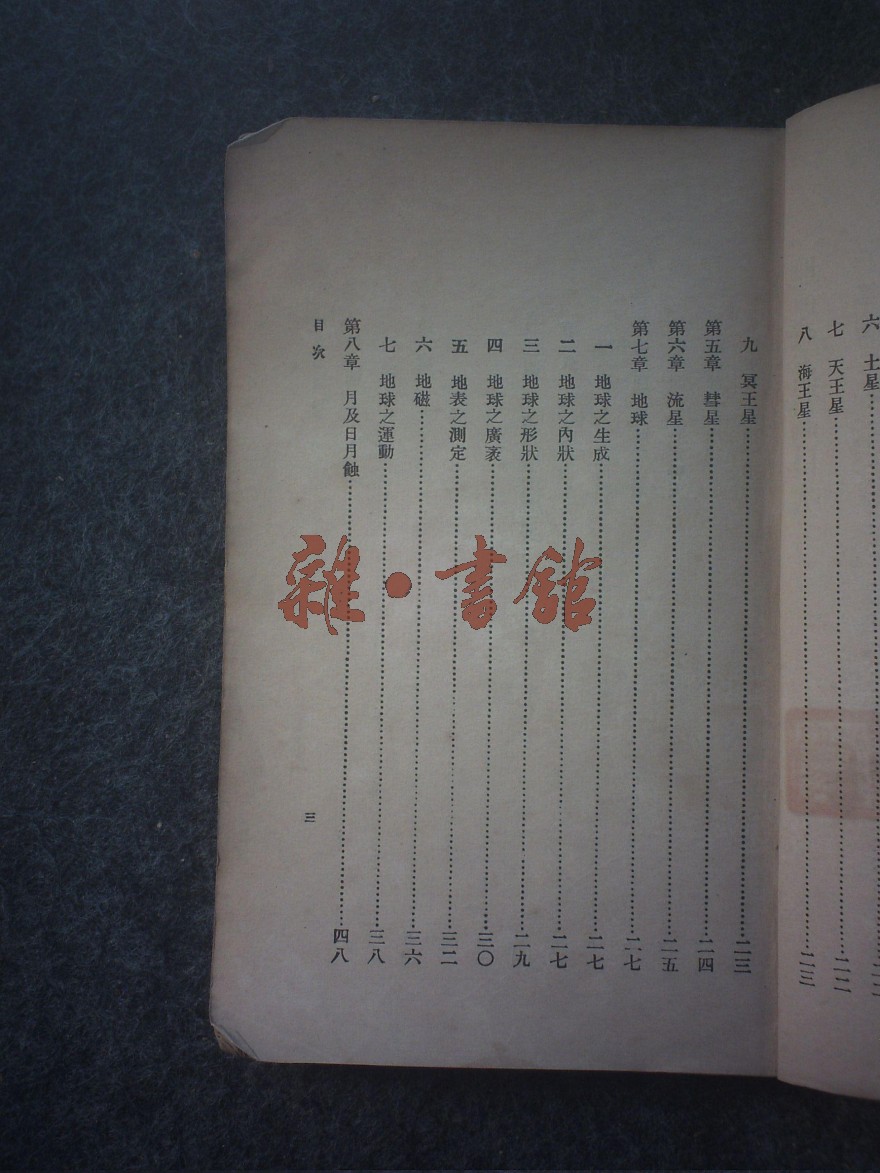 六 土星
七 天王星……二二
八 海王星……二三
九 冥王星……二三
第五章 彗星……二四
第六章 流星……二五
第七章 地球……二七
一 地球之生成……二七
二 地球之內狀……二七
三 地球之形狀……二九
四 地球之廣袤……三〇
五 地表之測定……三二
六 地磁……三六
七 地球之運動……三八
第八章 月及日月蝕……四八
目次
三
雜·書館